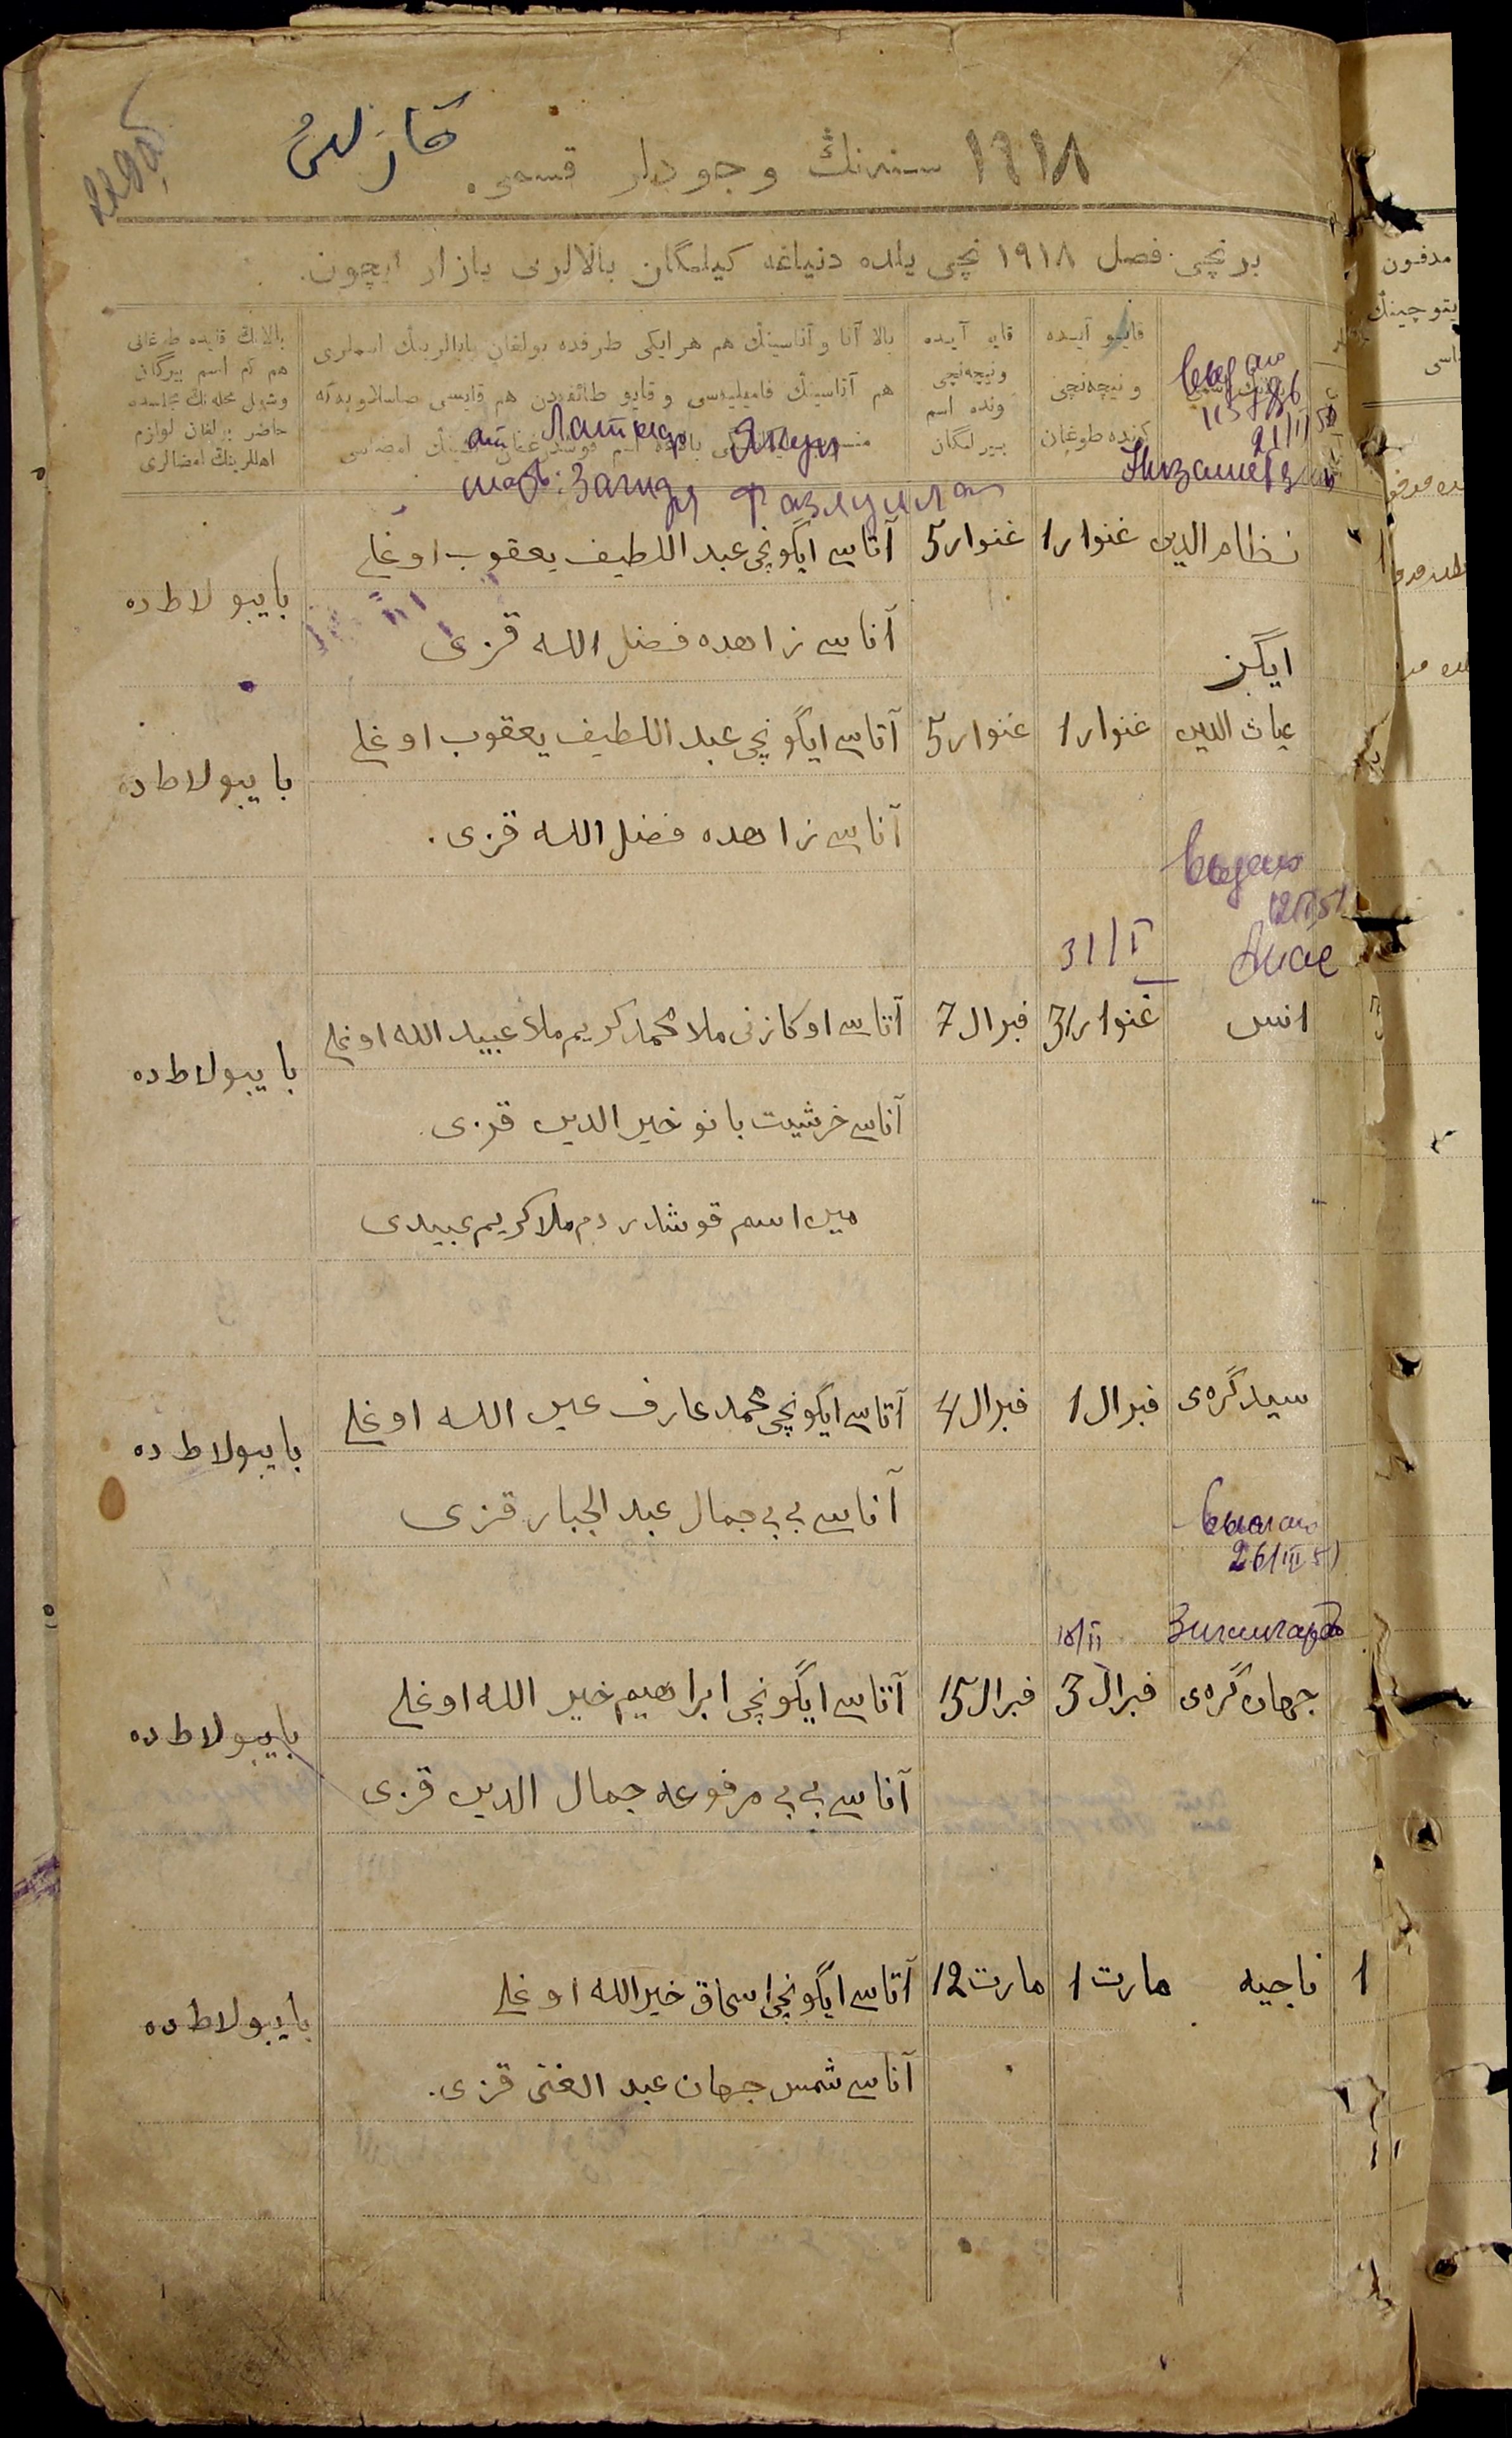 ١٩١٨ سنەنڭ وجودلر قسمی.
برنچی فصل ١٩١٨ نچی یلده دنیاغه کیلمگان بالالرنی یازار ایچون.
قایو آیده
و نیچه‌نچی
کونده طوغان
قایو آیده
و نیچه‌نچی
کونده اسم
بیرلگان
بالا آتا و آناسینڭ هم هر ایکی طرفده بولغان بابالرینڭ اسملری
هم آتاسینڭ فامیلیه‌سی و قایو طائفه‌دن هم قایسی
بالانڭ قایده طوغانی
هم کم اسم بیرگان
حاضر بولغان لوازم
اهللرینڭ امضالری
выдано
21/II 50
ат. Латыф Якуп
мать: Загида Фазлулла
نظام الدین غنوار 1 غنوار 5 آتاسی ایگونچی عبد اللطیف یعقوب اوغلی
بایبولاطده
آناسی زاهده فضل الله قزی
ایگز
غیاث الدین غنوار 1 غنوار 5 آتاسی ایگونچی عبد اللطیف یعقوب اوغلی
بایبولاطده
آناسی زاهده فضل الله قزی.
выдано
31/I Анас
انس غنوار 31 فبرال 7 آتاسی اوکازنی ملا محمد کریم ملا عبید الله اوغلی
بایبولاطده
آناسی خرشیت بانو خیر الدین قزی.
مین اسم قوشدردم ملا کریم عبیدی
سید گره‌ی فبرال 1 فبرال 4 آتاسی ایگونچی محمد عارف عین الله اوغلی
بایبولاطده
آناسی بی بی جمال عبد الجبار قزی
26/III 51
جهان گره‌ی فبرال 3 فبرال 15 آتاسی ایگونچی ابراهیم خیر الله اوغلی
بایبولاطده
آناسی بی بی مرفوعه جمال الدین قزی
1 ناجیه مارت 1 مارت 12 آتاسی ایگونچی اسحاق خیر الله اوغلی
بایبولاطده
آناسی شمس جهان عبد الغنی قزی.